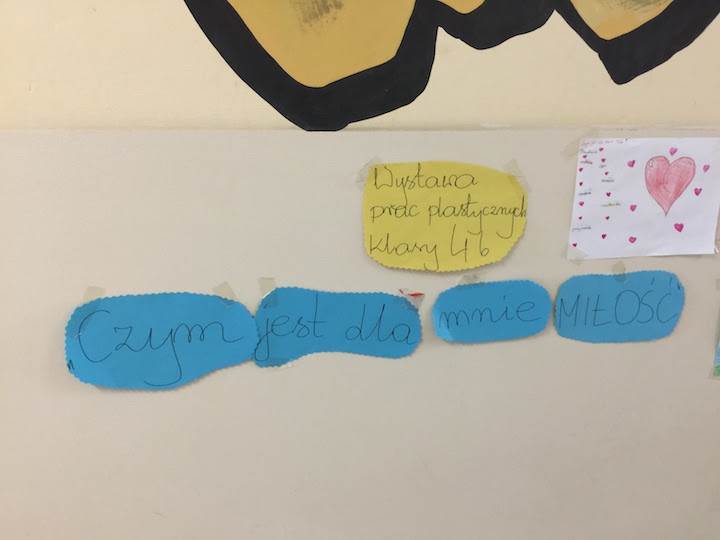 Wystawa
prac plastycznych
klasy 4b
„Czym jest dla mnie MIŁOŚĆ"